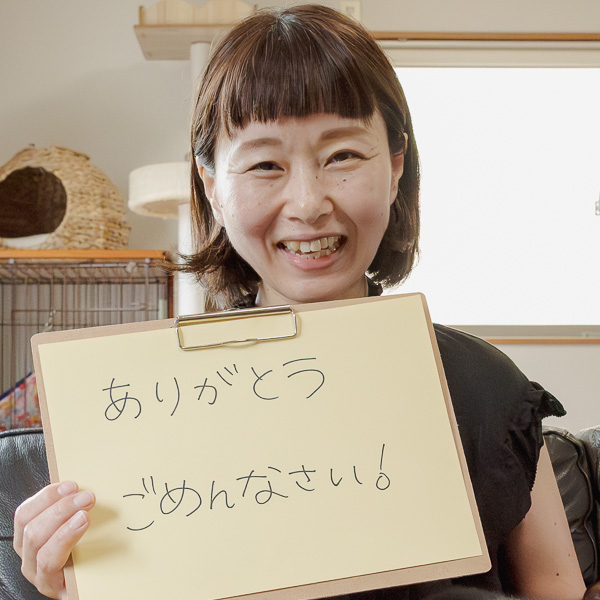 ありがとう
ごめんなさい!